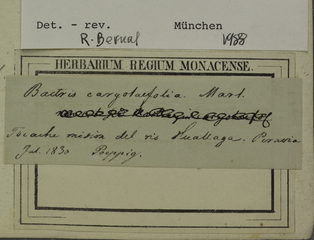 Det. - rev. München
R. Bernal 1988
HERBARIUM REGIUM MONACENSE.
Bactris caryotaefolia. Mart.
Tocache mision del rio Huallaga. Peruvia
Jul. 1830 Poeppig.